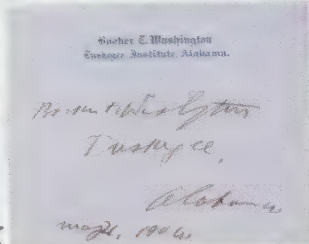 Booker T. Washington
Tuskegee Institute, Alabama.
Booker T Washington
Tuskegee,
Alabama
1906